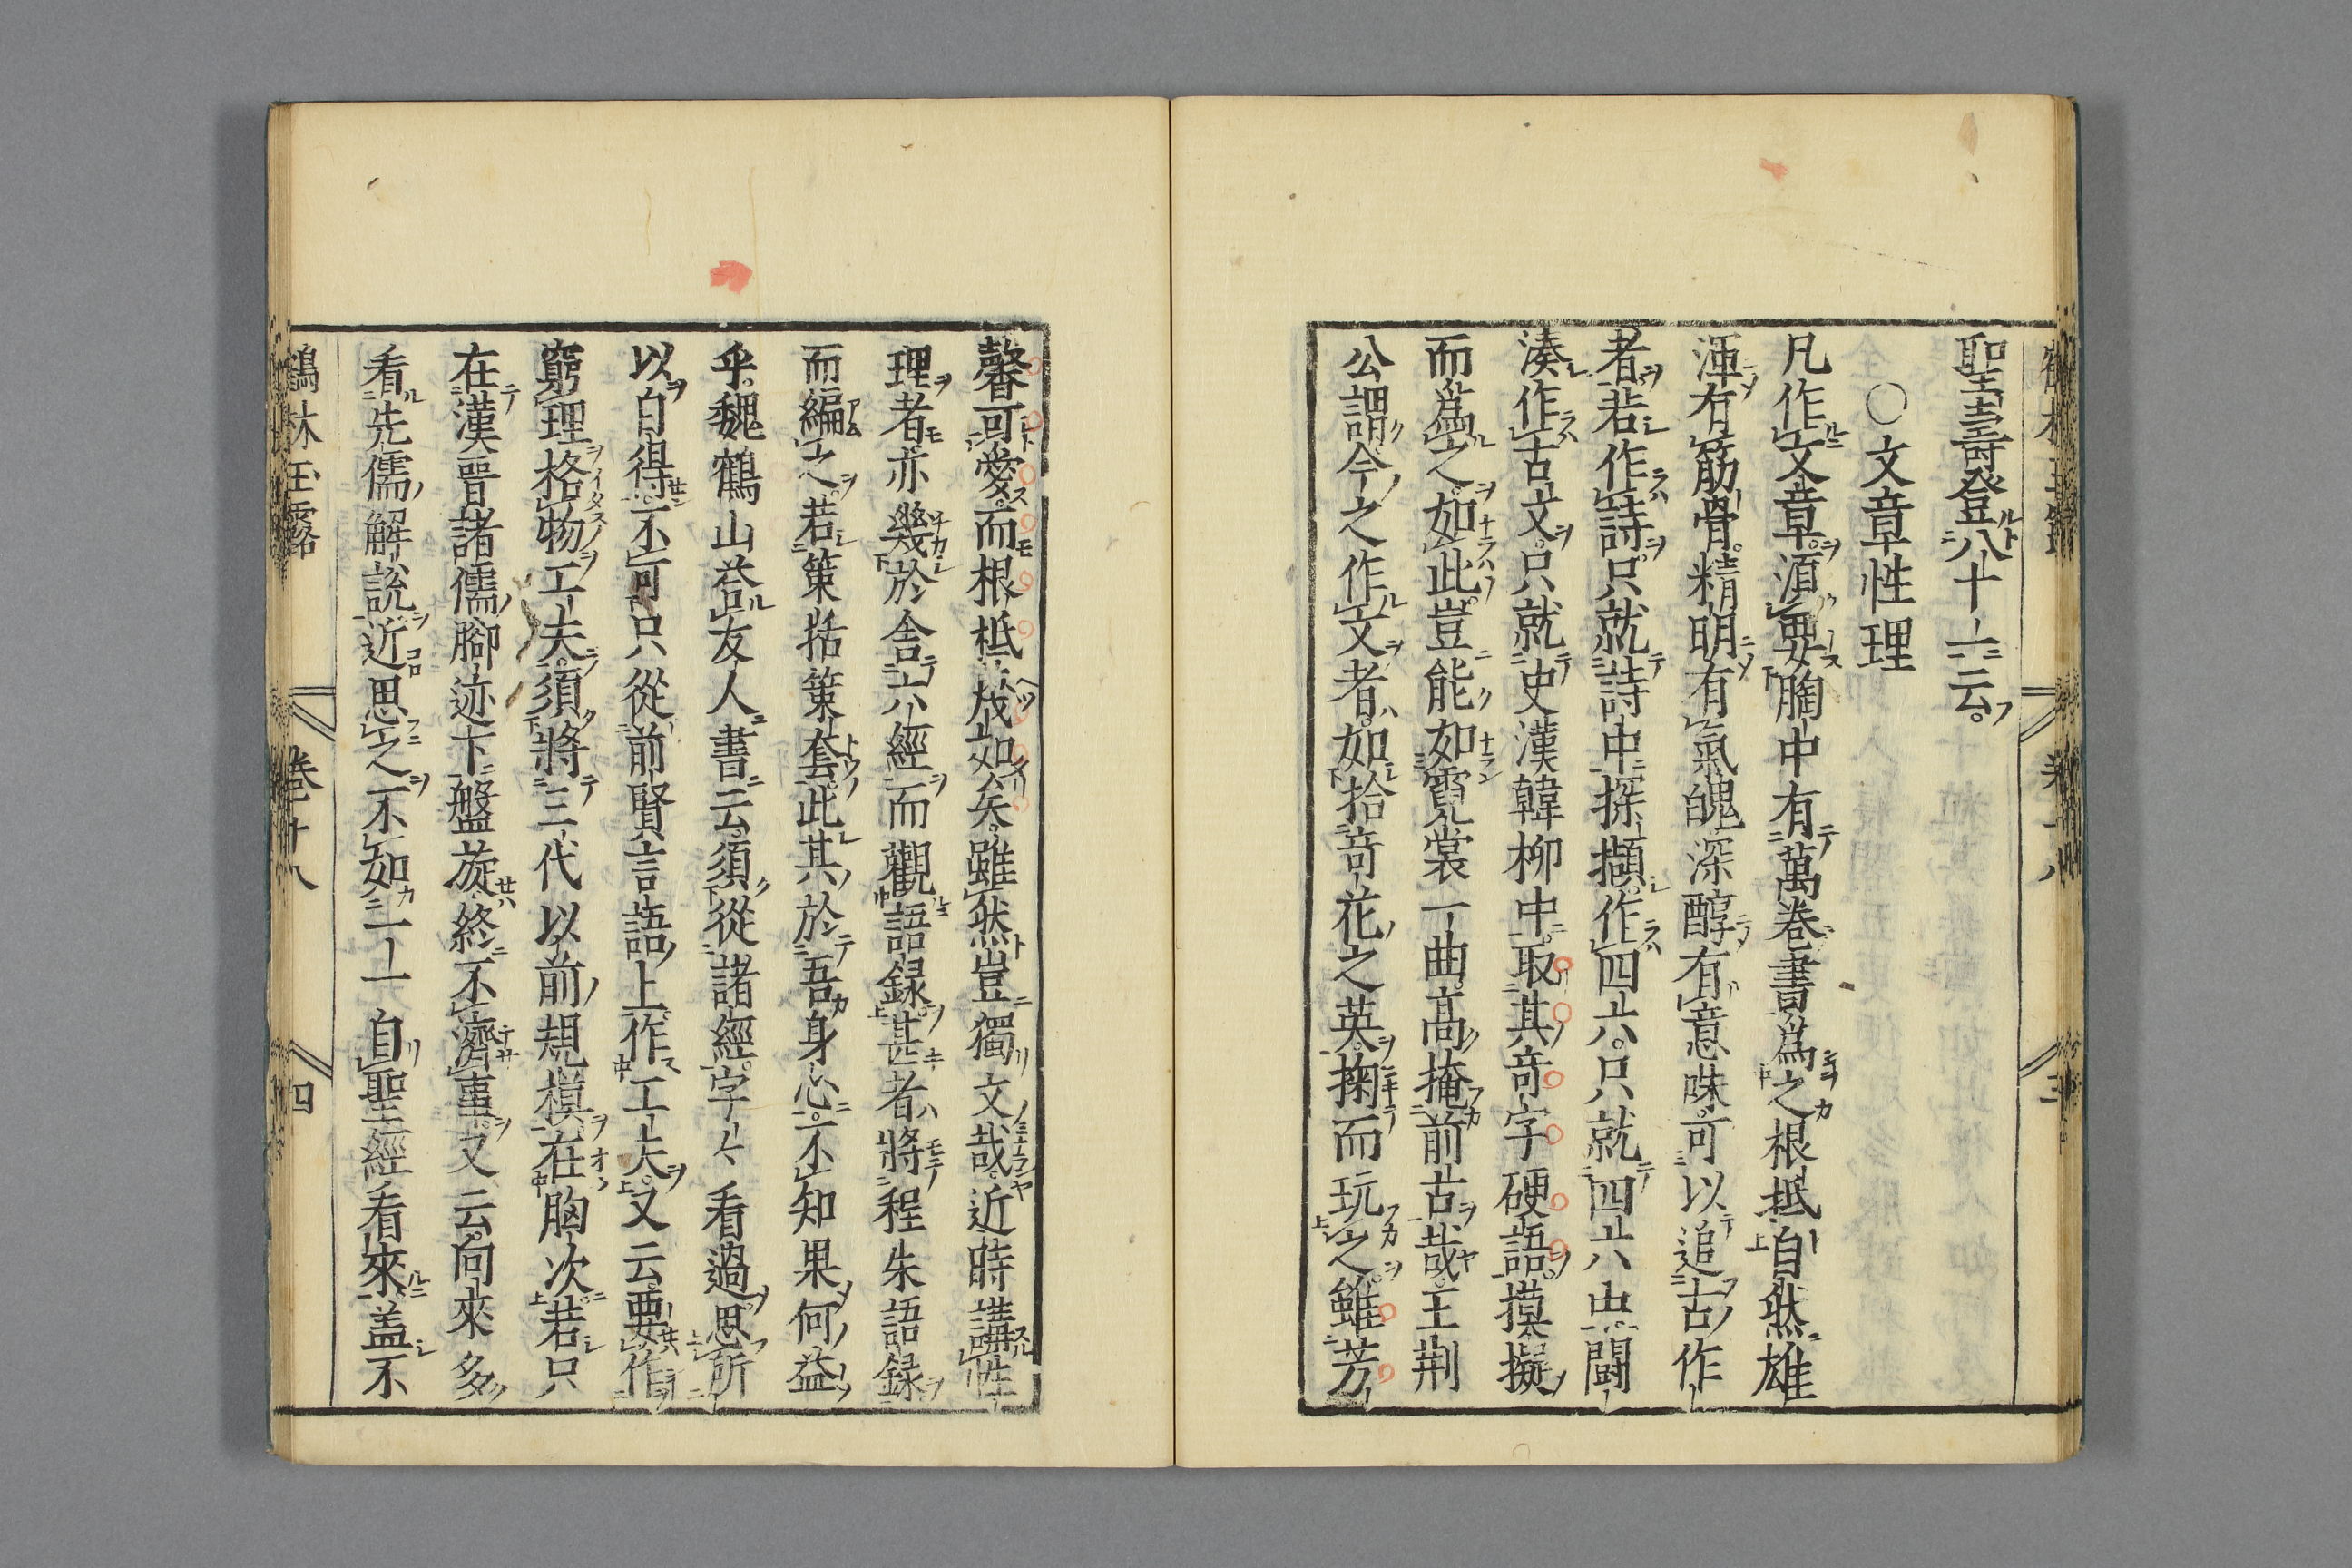 聖壽登八十一云
○文章性理
凡作文章須要胸中有萬卷書爲之根柢自然雄
渾有筋骨精明有氣魄深醇有意味可以追古作
者若作詩只就詩中探擷作四六只就四六中鬪
湊作古文只就史漢韓柳中取其竒字硬語摸擬
而爲之如此豈能如霓裳一曲高掩前古哉王荆
公謂今之作文者如拾竒花之英掬而玩之雖芳
馨可愛而根柢蔑如矣雖然豈獨文哉近時講性
理者亦幾於舎六經而觀語録甚者將程朱語録
而編之若策括策套此其於吾身心不知果何益
乎魏鶴山荅友人書云須從諸經字〻看過思所
以自得不可只從前賢言語上作工夫又云要作
窮理格物工夫須將三代以前規模在胸次若只
在漢晉諸儒腳迹下盤旋終不濟事又云向來多
看先儒解說近思之不如一一自聖經看來盖不
鶴林玉露　卷十八　四